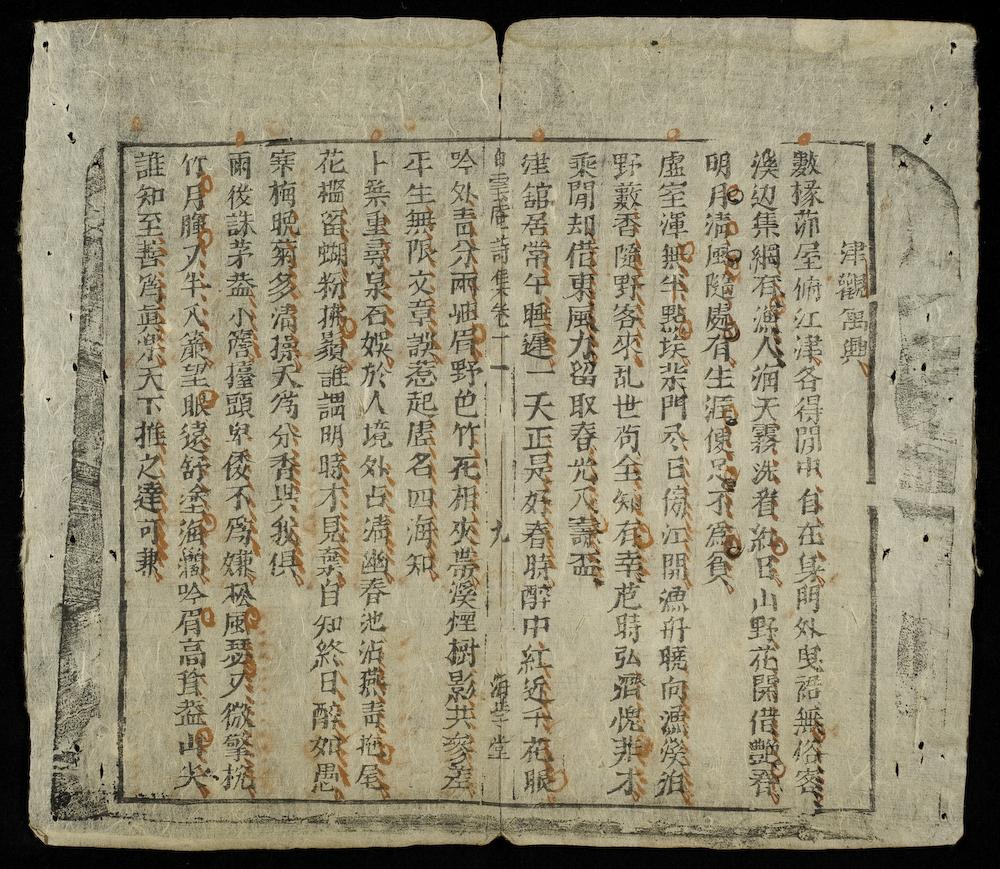 津觀寓興
數椽茆屋俯江津各得閒中自在身門外曳裾無俗客
溪边集網有漁人润天霧洗眷紅日山野花開借艷春
明月清風隨處有生涯便足不爲貧
虛室渾無半點埃柴門尽日傍江開漁舟曉向漁溪泊
野藪香隨野客來乱世苟全知有幸危時弘濟愧非才
乘閒却借東風力留取春光入壽盃
津舘居常午睡遲一天正是好春時醉中紅近千花眼
吟外青分兩岫眉野色竹花相夾帶溪煙樹影共參差
平生無限文章誤惹起虛名四海知
白雲庵詩集卷一 九 海學堂
卜築重尋泉石娛於人境外占清幽春池沾燕青拖尾
花檻留蝴粉撲鬚誰謂明時才見棄自知終日醉如愚
寒梅晚菊多清操天爲分香與我俱
雨後誅茅葢小簷擡頭卑倭不爲嫌松風瑟瑟微擎梡
竹月朣入半入簾望眼遠舒塗海濶吟眉高聳葢山尖
誰知至善眞樂天下推之達可兼